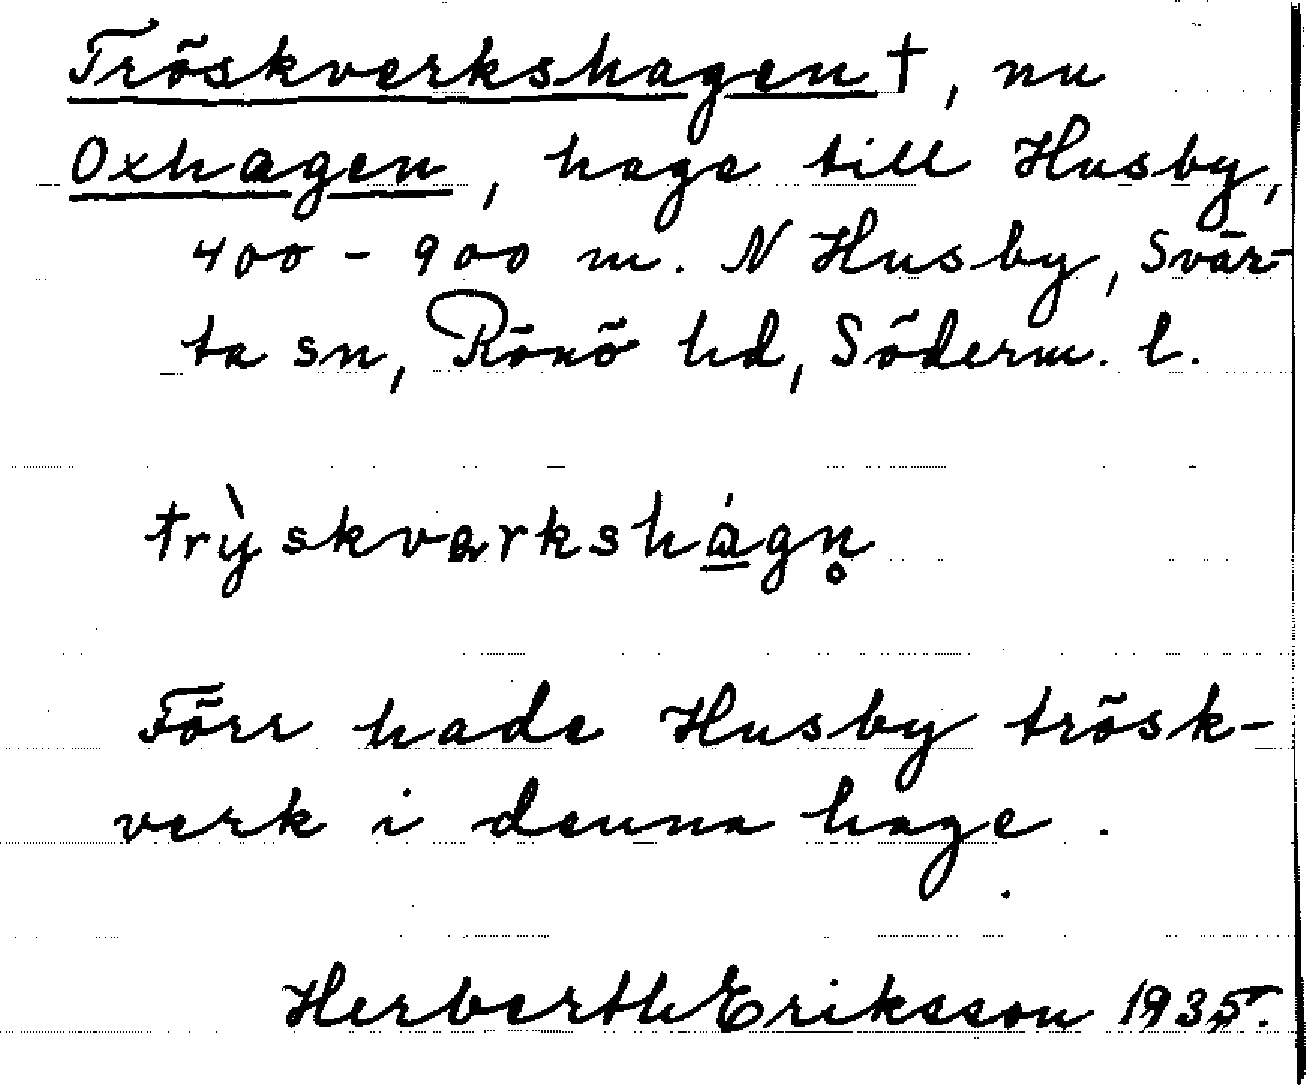 Tröskverkshagen †, nu
Oxhagen, haga till Husby,
400 - 900 m. N Husby, Svär-
ta sn, Rönö hd, Söderm. l.
trỳskværkshágn̥
Förr hade Husby trösk-
verk i denna hage.
Herberth Eriksson 1935.